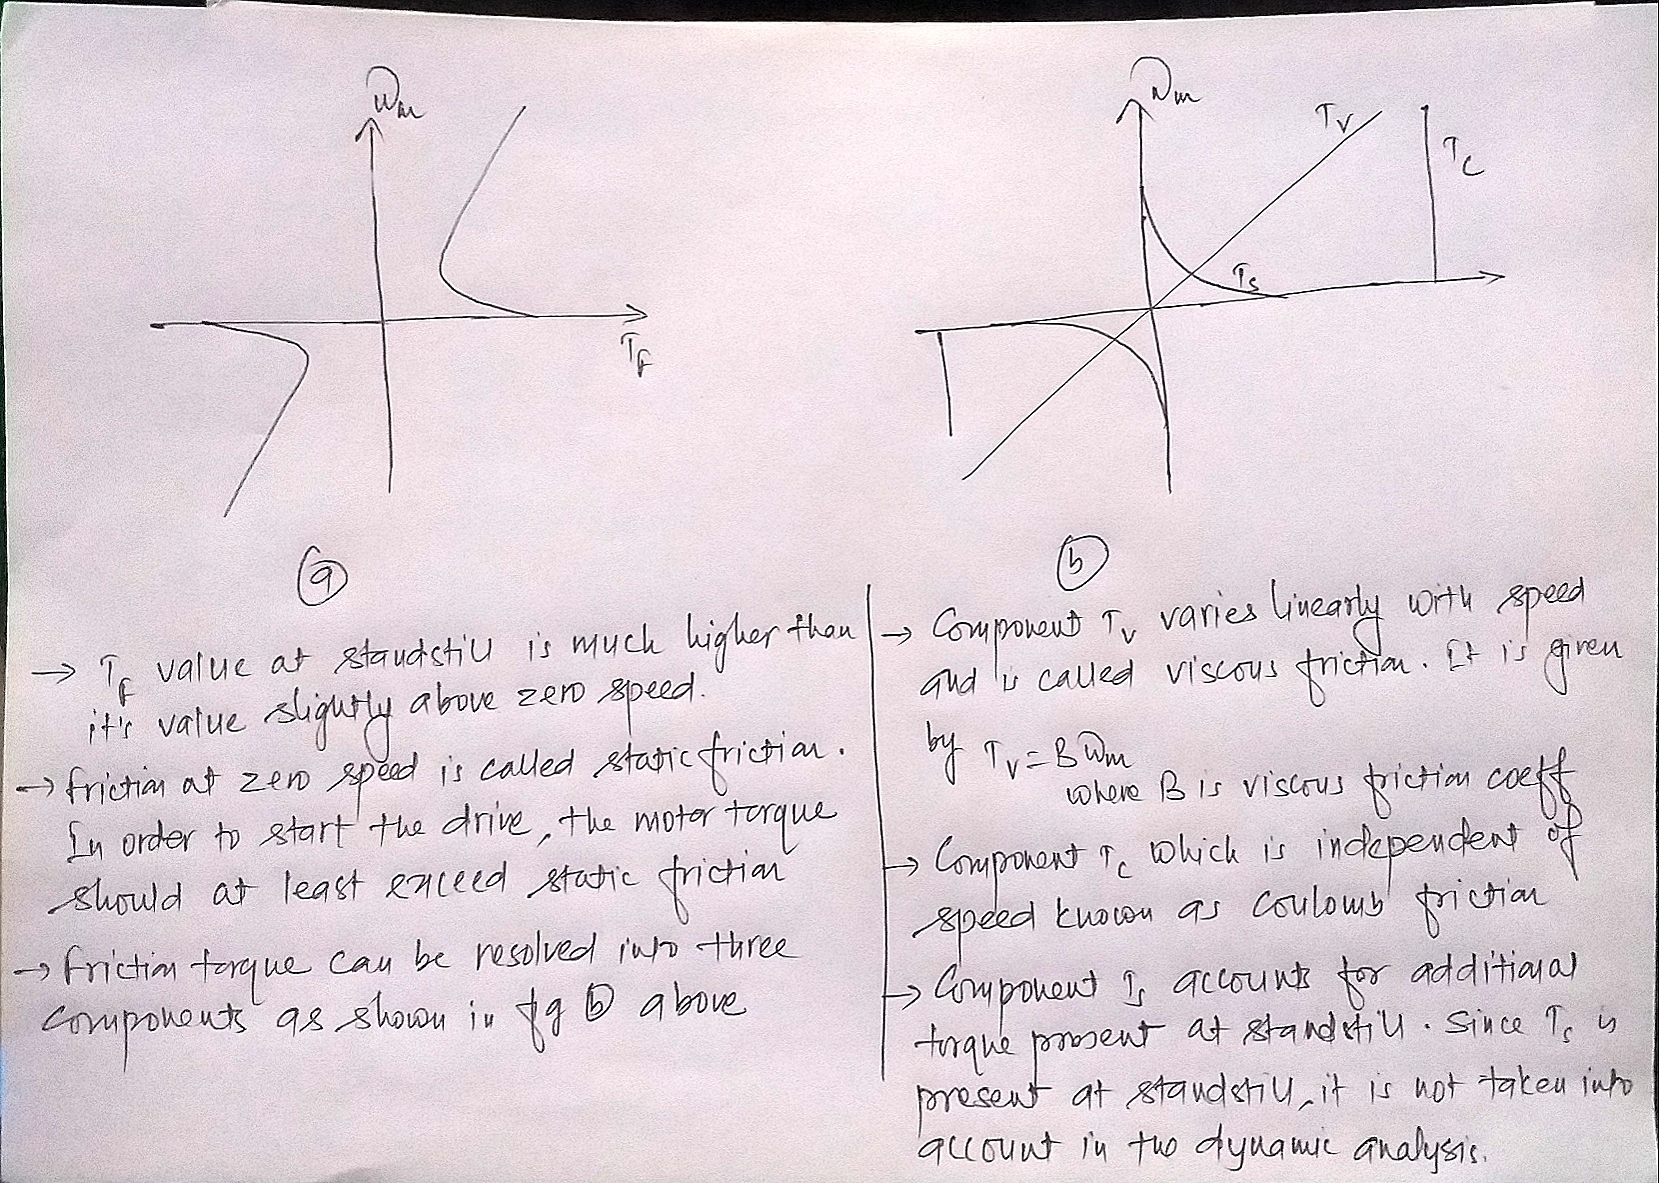 ωm
TF
ωm
Tv
Tc
Ts
(a)
(b)
→ TF value at standstill is much higher than
it's value slightly above zero speed.
→ friction at zero speed is called static friction.
In order to start the drive, the motor torque
should at least exceed static friction
→ friction torque can be resolved into three
components as shown in fg (b) above
→ Component Tv varies linearly with speed
and is called viscous friction. It is given
by Tv = Bωm
where B is viscous friction coeff
→ Component Tc which is independent of
speed known as coulomb friction
→ Component Ts accounts for additional
torque present at standstill. Since Ts is
present at standstill, it is not taken into
account in the dynamic analysis.